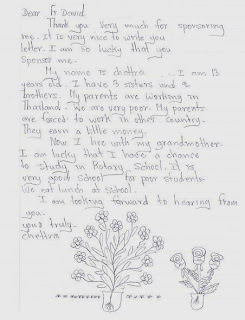 Dear Fr. David
Thank you very much for sponsoring
me. It is very nice to write you
letter. I am so lucky that you
Sponsor me.
My name is chettra. I am 13
years old. I have 3 sisters and 2
brothers. My parents are working in
Thailand. We are very poor. My parents
are forced to work in other country.
They earn a little money.
Now I live with my grandmother.
I am lucky that I have a chance
to study in Rotary School. It is
very good School for poor students.
We eat lunch at school.
I am looking forward to hearing from
you.
your truly.
chettra